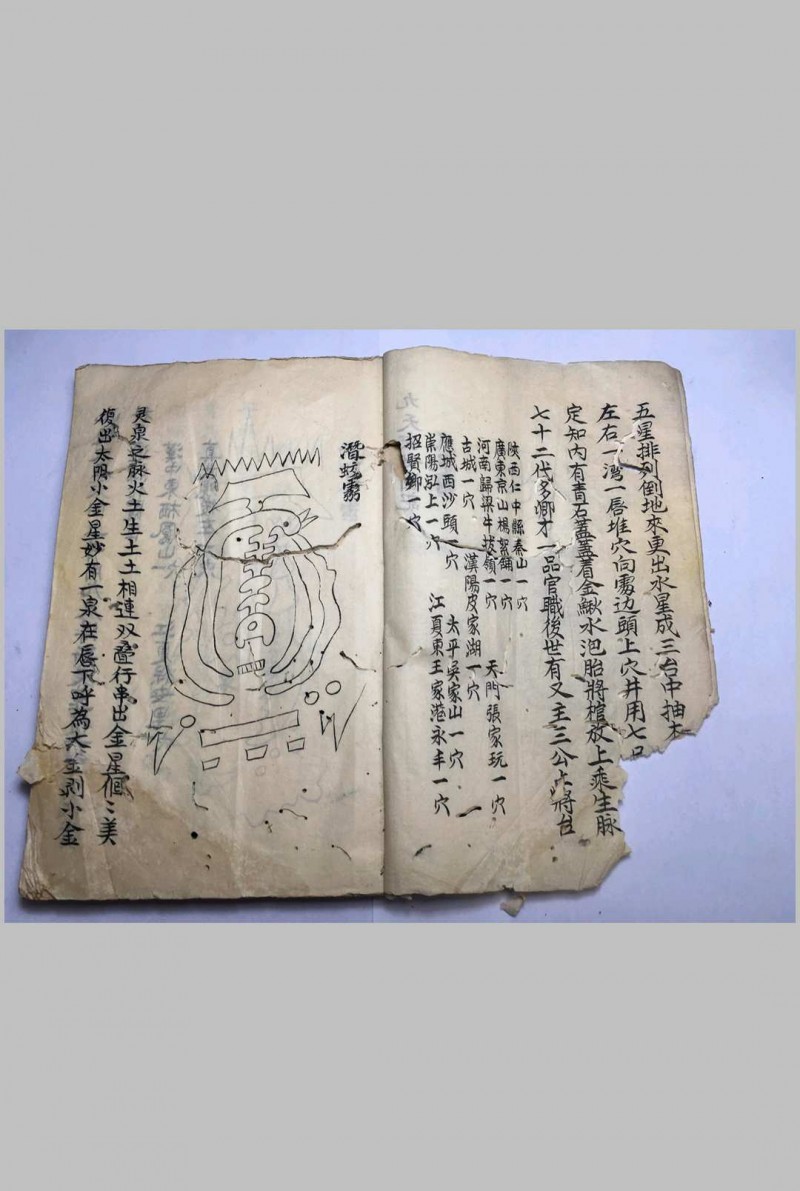 五星排列倒地來更出水星成三台中抽木
左右一灣一唇堆穴向霧边頭上穴井用七口
定知內有青石蓋蓋着金鰍水泡胎將棺放上乘生脉
七十二代多卿才一品官職後世有又主三公六將台
陝西仁中縣秦山一穴
廣東京山楊絮鋪一穴 天門張家玩一穴
河南歸梁牛坡嶺一穴
古城一穴 漢陽皮家湖一穴
應城西沙頭一穴 太平吳家山一穴
崇陽泓上一穴 江夏東王家港永丰一穴
招賢鄉一穴
潛蛟霧
灵泉之脉火土生土土相連双叠行串出金星個〻美
復出太陽小金星妙有一泉在唇下呼為大金剥小金